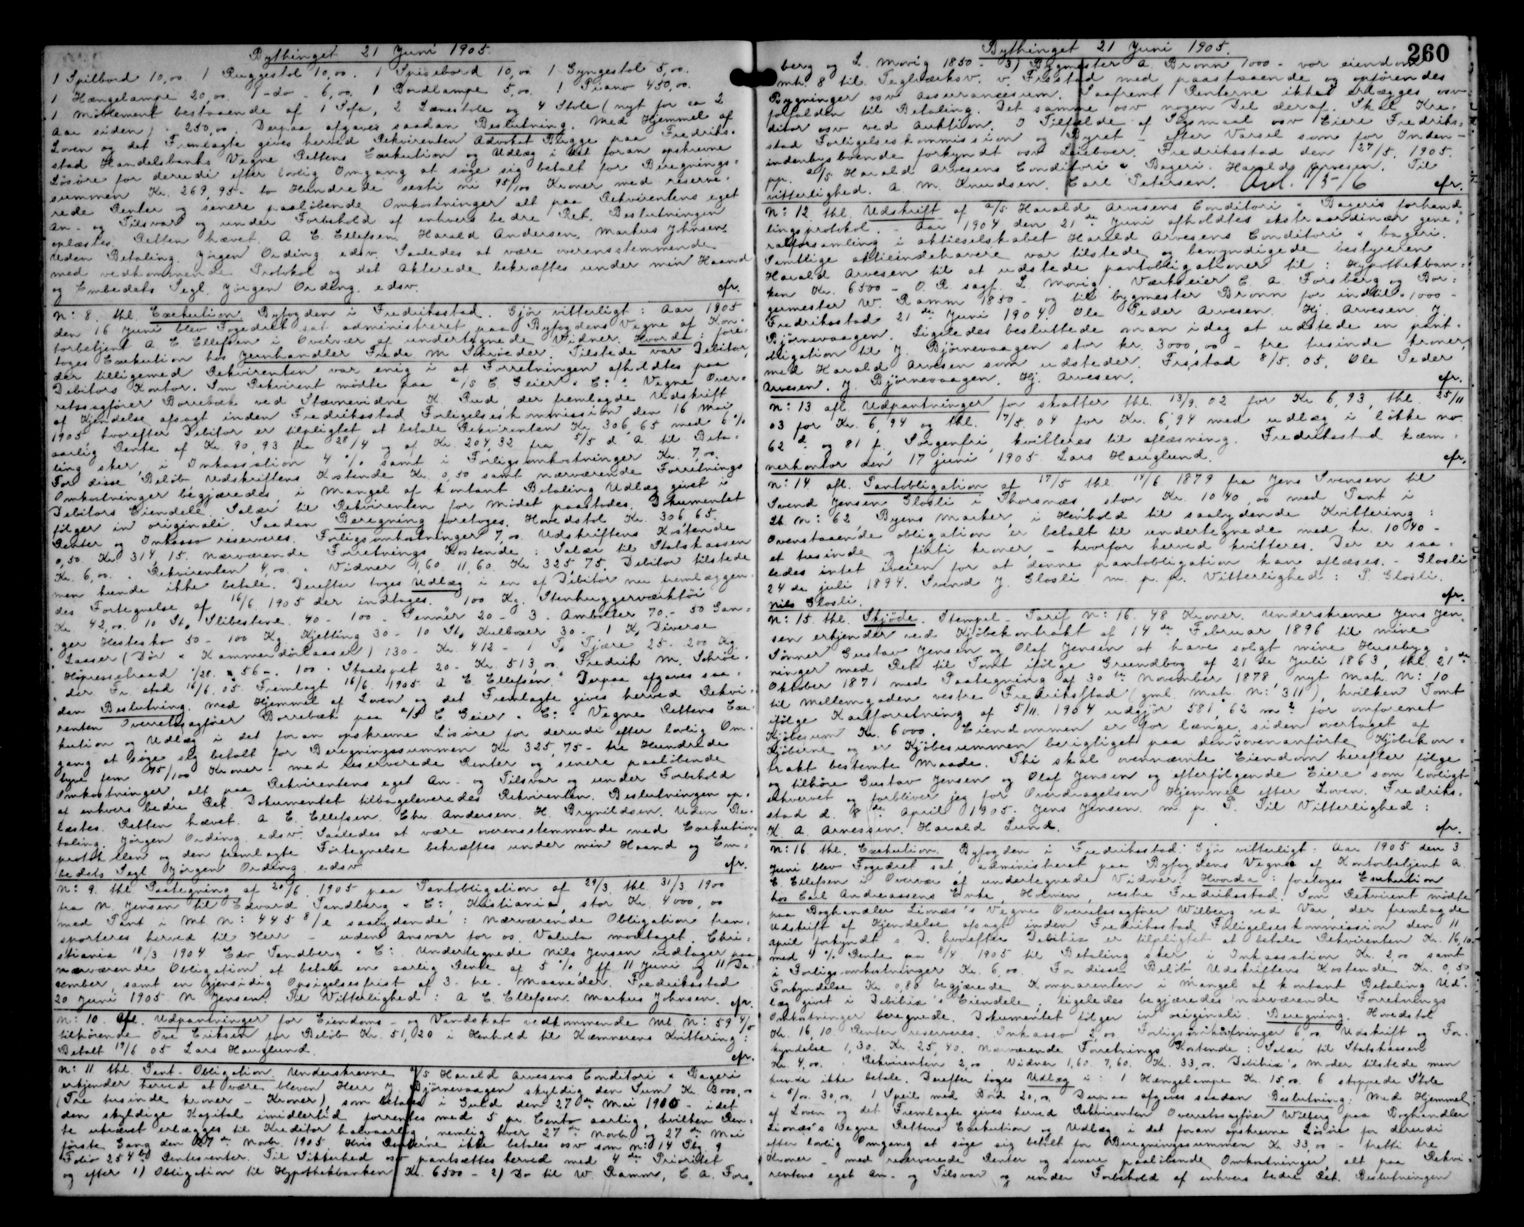 Bythinget 21 Juni 1905.
1 Spilbord 10,00. 1 Ruggestol 10,00. 1 Spisebord 10,00 1 Gyngestol 5,00.
1 Hængelampe 20,00. 1 - do - 6,00. 1 Bordlampe 5,00. 1 Piano 450,00.
1 Möblement bestaaende af 1 Sofa, 2 Lænestole og 4 Stole (nyt for ca 2
Aar siden) - 250,00. Derpaa afgaves saadan Beslutning. Med Hjemmel af
Loven og det Fremlagte gives herved Rekvirenten Advokat Bugge paa Fredriks-
stad Handelsbanks Vegne Rettens Exekution og Udlæg i det foran opskrevne
Lösöre for derudi efter lovlig Omgang at söge sig betalt for Beregnings-
summen Kr. 269,95 - to Hundrede sexti ni 95/100 Kroner med reserve-
rede Renter og senere paalöbende Omkostninger alt paa Rekvirentens eget
An- og Tilsvar og under Forbehold af enhvers bedre Ret. Beslutningen
oplæstes. Retten hævet. A E Ellefsen. Harald Andersen. Markus Johnsen.
Uden Betaling. Jörgen Ording edsv. Saaledes at være overensstemmende
med vedkommende Protokol og det Akterede bekræftes under min Haand
og Embedets Segl. Jörgen Ording edsv. cfr.
N: 8. thl. Exekution Byfogden i Fredrikstad. Gjör vitterligt: Aar 1905
den 16 Juni blev Fogedret sat administreret paa Byfogdens Vegne af Kon-
torbetjent A E Ellefsen i Overvær af undertegnede Vidner. Hvorda: fore-
toges Exekution hos Jernhandler Frede M Schröder. Tilstede var Debitor,
der tilligemed Rekvirenten var enig i at Forretningen afholdtes paa
Debitors Kontor. Som Rekvirent mödte paa A/S E Geier & C:s Vegne Over-
retssagförer Borrebæk ved Stævnevidne K Rud der fremlagde Udskrift
af Kjendelse afsagt inden Fredrikstad Forligelseskommission den 16 Mai
1905, hvorefter Debitor er tilpligtet at betale Rekvirenten Kr 306,65 med 6 %
aarlig Rente af Kr. 90,93 fra 28/4 og af Kr. 204,32 fra 5/5 d A til Beta-
ling sker, i Inkassation 4 % samt i Forligsomkostninger Kr. 7,00.
For disse Belöb Udskriftens Kostende Kr 0,50 samt nærværende Forretnings
Omkostninger begjæredes, i Mangel af kontant Betaling Udlæg givet i
Debitors Eiendele. Salær til Rekvirenten for Mödet paastodes. Dokumentet
fölger in originali. Saadan Beregning foretoges. Hovedstol Kr. 306,65.
Renter og Inkasso reserveres. Forligsomkostninger 7,00. Udskriftens Kostende
0,50 Kr 314,15. Nærværende Forretnings Kostende: Salær til Statskassen
Kr. 6,00. Rekvirenten 4,00. Vidner 1,60 11,60. Kr. 325,75. Debitor tilstede
men kunde ikke betale. Derefter toges Udlæg i en af Debitor nu fremlæggen-
des Fortegnelse af 16/6 1905 der indtages. 100 Kg. Stenhuggerværktöi
Kr. 42,00. 10 St. Slibestene. 40 - 100 - Penner 20 - 3. Ambolter 70 - 50 Gan-
ger Hestesko 50 - 100 Kg Kjetting 30 - 10 St. Hulboser 30 - 1 K. Diverse
Laaser (Dör & Kammerdörlaaser) 130 - Kr. 412 - 1 T. Tjære 25 - 200 Kg
Höpressetraad 1/28. 56 - 100 - Staalspet 20 - Kr. 513,00. Fredrik M. Schrö-
der Fr.stad 16/6 05. Fremlagt 16/6 1905 A E Ellefsen. Derpaa afgaves saa-
dan Beslutning. Med Hjemmel af Loven og det Fremlagte gives herved Rekvi-
renten Overretssagförer Borrebæk paa A/S E Geier & C:s Vegne Rettens Exe-
kution og Udlæg i det foran opskrevne Lösöre for derudi efter lovlig Om-
gang at söge sig betalt for Beregningssummen Kr 325,75 - tre Hundrede
tyve fem 75/100 Kroner - med reserverede Renter og senere paalöbende
Omkostninger, alt paa Rekvirentens eget An- og Tilsvar og under Forbehold
af enhvers bedre Ret. Dokumentet tilbageleveredes Rekvirenten. Beslutningen op-
læstes. Retten hævet. A. E. Ellefsen. Chr. Andersen. H. Brynildsen. Uden Be-
taling. Jörgen Ording edsv. Saaledes at være overensstemmende med Exekutions
protokollen og den fremlagte Fortegnelse bekræftes under min Haand og Em-
bedets Segl Jörgen Ording edsv cfr.
N: 9. thl Paategning af 20/6 1905 paa Pantobligation af 29/3. thl 31/3 1900
fra N. Jensen til Edvard Sandberg & C:, Kristiania, stor Kr. 4000,00
med Pant i Mt N: 445 8/e saalydende: Nærværende Obligation tran-
sporteres herved til Herr - uden Ansvar for os. Valuta modtaget. Chri-
stiania 18/3 1904 Edv Sandberg & C: Undertegnede Nils Jensen vedtager paa
nærværende Obligation at betale en aarlig Rente af 5 %, pf 11 Juni og 11 De-
cember, samt en gjensidig Opsigelsesfrist af 3. tre. Maaneder. Fredrikstad
20 Juni 1905 N Jensen. Til Vitterlighed: A E Ellefsen. Markus Johnsen. cfr.
N: 10. afl. Udpantninger for Eiendoms- og Vandskat vedkommende Mt. N: 59 4/5
tilhörende Ove Eriksen for Belöb Kr. 51,020 i Henhold til Kæmnerens Kvittering:
Betalt 19/6 05 Lars Hauglund. cfr.
N: 11 thl. Pant. Obligation. Underskrevne A/S Harald Arvesens Conditori & Bageri
erkjender herved at være bleven Herr J. Björnevaagen skyldig den Sum Kr 3000,00
(Tre tusinde kroner - Kroner), som betales i Guld den 27de Mai 1906 - idet
den skyldige Kapital imidlertid forrentes med 5 pr. Cento aarlig, hvilken Ren-
te ukrævet erlægges til Kreditor halvaarlig nemlig hver 27de Novbr og 27de Mai
förste Gang den 27de Novb. 1905. Hvis Renterne ikke betales osv som ni 14 Pbg 9
Folio 254 Renterenter. Til Sikkerhed osv pantsættes herved med 4de Prioritet
og efter 1) Obligation til Hypothekbanken Kr 6500 - 2) Do til W. Ramm, E. A. Fors-
Bythinget 21 Juni 1905.
260
berg og L. Movig 1850 - 3) Bygmester A. Brönn 1000 - vor eiendom
mt. 8 til Teglværksv. v. Fr.stad med paastaaende og opförendes
Bygninger osv Assurancesum. Saafremt Renterne ikke erlægges osv
forfalden til Betaling. Det samme osv nogen Del deraf. Skal Kre-
ditor osv ved Auktion. I Tilfælde af Sögsmaal osv Eiere Fredrik-
stad Forligelseskommission og Byret - efter Varsel som for Inden-
inderbysboende forkyndt osv Leieboer. Fredrikstad den 27/5. 1905.
pp. A/S Harald Arvesens Conditori & Bageri. Haralds Arvesen. Til
vitterlighed. A. M. Knudsen. Carl Petersen. cfr.
N: 12 thl. Udskrift af A/S Harald Arvesens Conditori & Bageris forhand-
lingsprotokol. - Aar 1904 den 21de Juni afholdtes ekstraordinær gene-
ralforsamling i aktieselskabet Harald Arvesens Conditori & bageri.
Samtlige aktieindehavere var tilstede og bemyndigede bestyreren
Harald Arvesen til at udstede pantobligationer til: Hypothekban-
ken Kr. 6500 - O. R. sagf. L Movig. Værkseier E. A. Forsberg og Bor-
germester W. Ramm 1850 - og til bygmester Brönn for indtil 1000 -
Fredrikstad 21de Juni 1904. Ole Peder Arvesen. Hj. Arvesen. J
Björnevaagen. Ligeledes besluttede man idag at udstede en pant-
obligation til J. Björnevaagen stor kr. 3000,00 - tre tusinde kroner,
med Harald Arvesen som udsteder. Fr.stad 8/5. 05. Ole Peder
Arvesen. J. Björnevaagen. Hj. Arvesen. cfr.
N: 13 afl. Udpantninger for skatter thl. 13/9. 02 for Kr 6,93, thl. 25/11
03 for Kr. 6,94 og thl. 17/5. 04 for Kr. 6,94 med udlæg i lökke no
62 d og 81 f, Sorgenfri kvitteres til aflæsning. Fredrikstad kæm-
nerkontor den 17 juni 1905. Lars Hauglund. cfr.
N: 14 afl. Pantobligation af 17/5 thl. 17/6 1879 fra Jens Svensen til
Svend Jensen Glosli i Thorsnæs stor Kr. 1040,00 med Pant i
Lt N: 62, Byens Marker, i Henhold til saalydende Kvittering:
Ovenstaaende obligation er betalt til undertegnede med kr. 1040 -
et tusinde og firti kroner - hvorfor herved kvitteres. Der er saa-
ledes intet iveien for at denne pantobligation kan aflæses. - Glosli
24de juli 1894. Svend J. Glosli m. p. p. Vitterlighed: P. Glosli.
Nils Glosli. cfr.
N: 15. thl. Skjöde. Stempel-Tarif N: 16. 48 Kroner. Underskrevne Jens Jen-
sen erkjender ved Kjöbekontrakt af 14de Februar 1896 til mine
Sönner Gustav Jensen og Olaf Jensen at have solgt mine Husebyg-
ninger med Ret til Tomt ifölge Grundbrev af 21de Juli 1863, thl. 21de
Oktober 1871 med Paategning af 30te November 1878 nyt Matr. N: 10
til Mellemgaden vestre Fredrikstad (gml. Matr. N: 311), hvilken Tomt
ifölge Kartforretning af 5/11. 1904 udgjör 581.62 m² for omforenet
Kjöbesum Kr. 6000. Eiendommen er for længe siden overtaget af
Kjöberne og er Kjöbesummen berigtiget paa den ovenanförte Kjöbekon-
trakt bestemte Maade. Thi skal ovennævnte Eiendom herefter fölge
og tilhöre Gustav Jensen og Olaf Jensen og efterfölgende Eiere som lovligt
erhvervet og forbliver jeg for Overdragelsen Hjemmel efter Loven. Fredrik-
stad d. 8de April 1905. Jens Jensen. m. p. P. Til Vitterlighed:
K A. Arnessen. Harald Lund. cfr.
N: 16. thl. Exekution. Byfogden i Fredrikstad. Gjör vitterligt: Aar 1905 den 3
Juni blev Fogedret sat, administreret paa Byfogdens Vegne af Kontorbetjent A.
E Ellefsen i Overvær af undertegnede Vidner. Hvorda: foretoges Exekution
hos Carl Andreassens Enke, Holmen, vestre Fredrikstad. Som Rekvirent mödte
paa Boghandler Lionæs's Vegne Overretssagförer Wilberg ved Vær, der fremlagde
Udskrift af Kjendelse afsagt inden Fredrikstad Forligelseskommission den 11
April forkyndt s. D. hvorefter Debitrix er tilpligtet at betale Rekvirenten Kr. 16,10
med 4 % Rente fra 8/4 1905 til Betaling sker, i Inkassation Kr. 2,00 samt
i Forligsomkostninger Kr. 6,00. For disse Belöb, Udskriftens Kostende Kr. 0,50
Forkyndelse Kr. 0,80 begjærede Komparenten i Mangel af kontant Betaling Ud-
læg givet i Debitrix's Eiendele, ligeledes begjæredes nærværende Forretnings
Omkostninger beregnede. Dokumentet fölger in originali. Beregning. Hovedstol
Kr. 16,10. Renter reserveres. Inkasso 2,00. Forligsomkostninger 6,00. Udskrift og For-
kyndelse 1,30. Kr 25,40. Nærværende Forretnings Kostende: Salær til Statskassen
Kr. 4,00. Rekvirenten 2,00 Vidner 1,60. 7,60. Kr. 33,00. Debitrix's Moder tilstede men
kunde ikke betale. Derefter toges Udlæg i: 1 Hængelampe Kr. 15,00. 6 stoppede Stole
à 5/00. 30,00. 1 Speil med Bord 20,00. Derpaa afgaves saadan Beslutning: Med Hjemmel
af Loven og det Fremlagte gives herved Rekvirenten Overretssagförer Wilberg paa Boghandler
Lionæs's Vegne Rettens Exekution og Udlæg i det foran opskrevne Lösöre for derudi
efter lovlig Omgang at söge sig betalt for Beregningssummen Kr 33,00 - tretti tre
Kroner - med reserverede Renter og senere paalöbende Omkostninger, alt paa Rekvi-
rentens eget An- og Tilsvar og under Forbehold af enhvers bedre Ret. Beslutningen